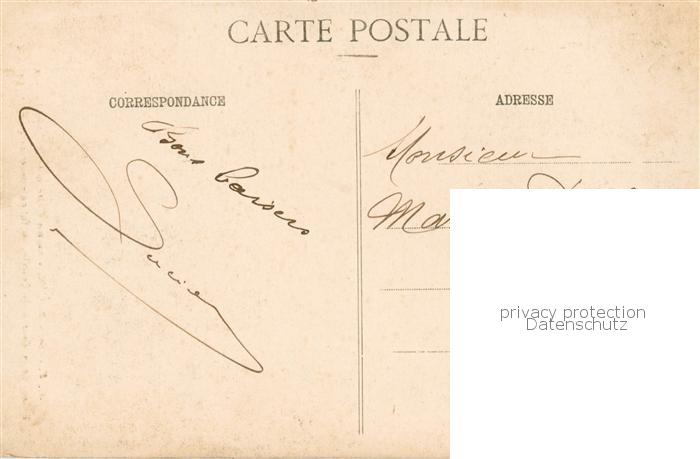 CARTE POSTALE
CORRESPONDANCE
ADRESSE
Bons baisers
Lucien
Monsieur
privacy protection
Datenschutz